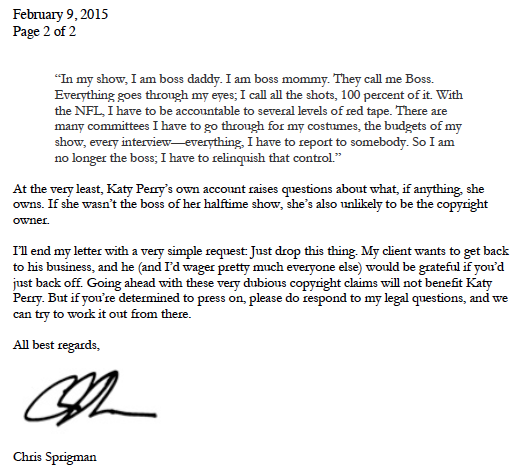 February 9, 2015
Page 2 of 2
“In my show, I am boss daddy. I am boss mommy. They call me Boss.
Everything goes through my eyes; I call all the shots, 100 percent of it. With
the NFL, I have to be accountable to several levels of red tape. There are
many committees I have to go through for my costumes, the budgets of my
show, every interview—everything, I have to report to somebody. So I am
no longer the boss; I have to relinquish that control.”
At the very least, Katy Perry’s own account raises questions about what, if anything, she
owns. If she wasn’t the boss of her halftime show, she’s also unlikely to be the copyright
owner.
I’ll end my letter with a very simple request: Just drop this thing. My client wants to get back
to his business, and he (and I’d wager pretty much everyone else) would be grateful if you’d
just back off. Going ahead with these very dubious copyright claims will not benefit Katy
Perry. But if you’re determined to press on, please do respond to my legal questions, and we
can try to work it out from there.
All best regards,
Chris Sprigman